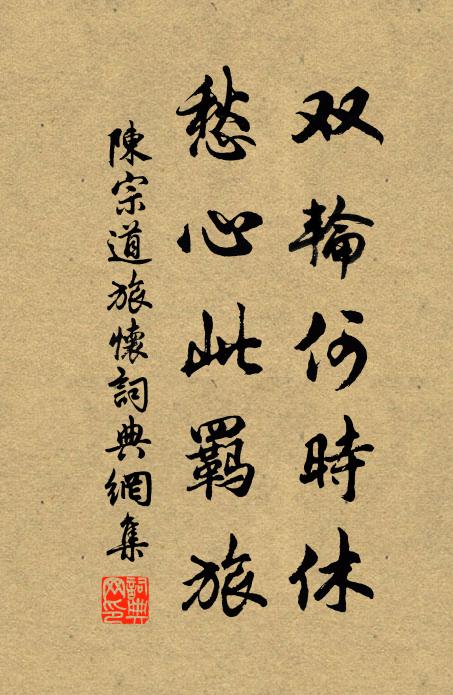 双輪何時休
愁心此羈旅
陳宗道旅懷詞典網集
詞典網印